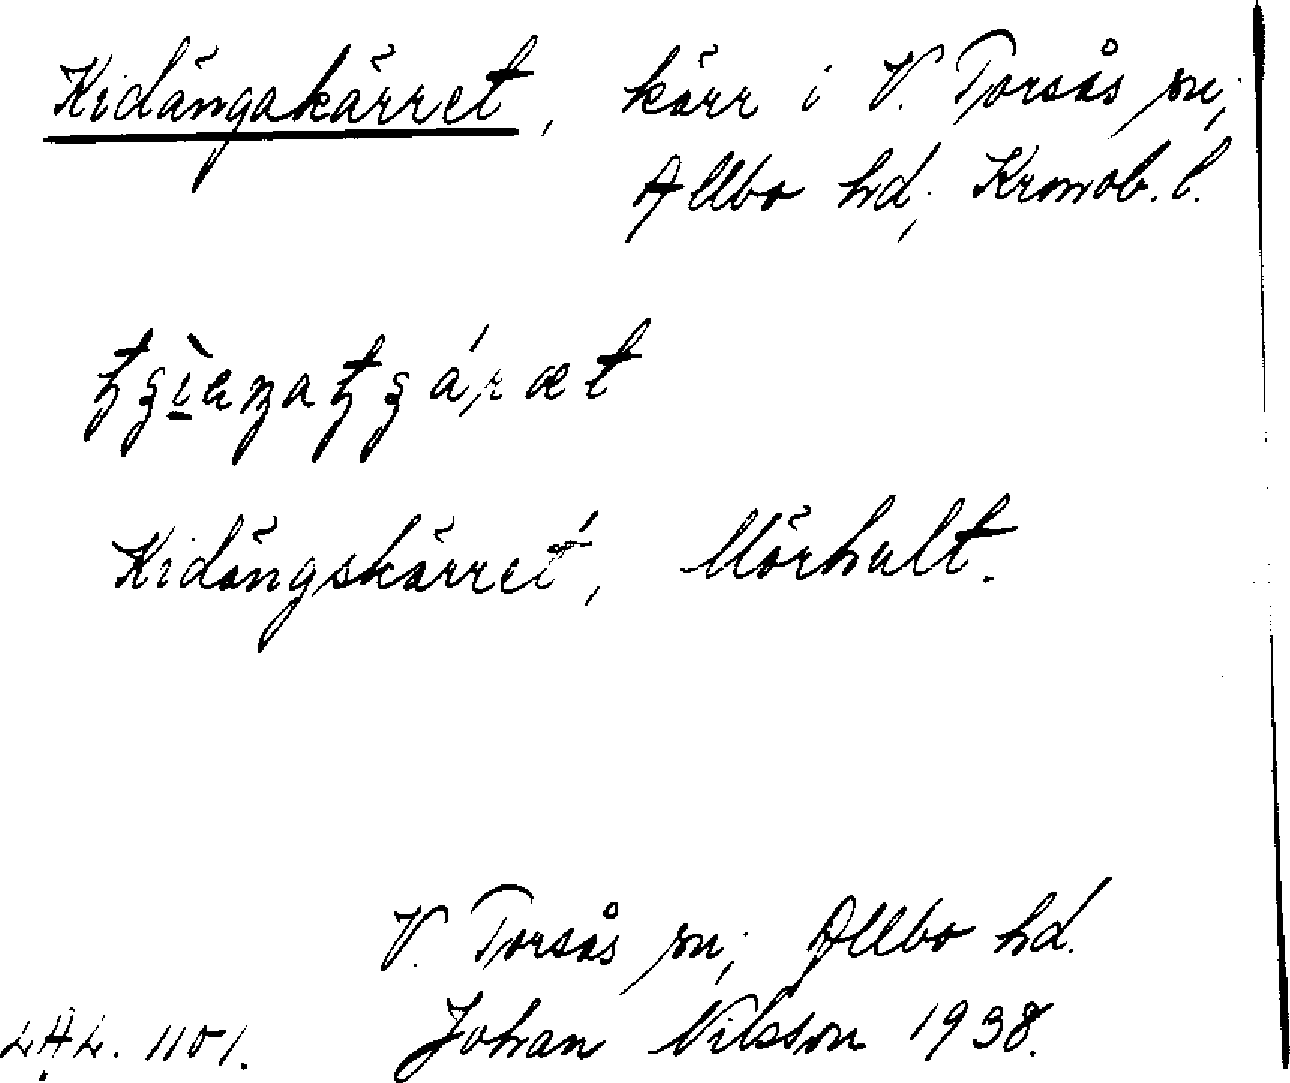 Kidängakärret, kärr i V. Torsås sn,
Allbo hd, Kronob. l.
Kidängskärret, Mörhult.
V. Torsås sn, Allbo hd.
LAL. 1101. Johan Nilsson 1938.